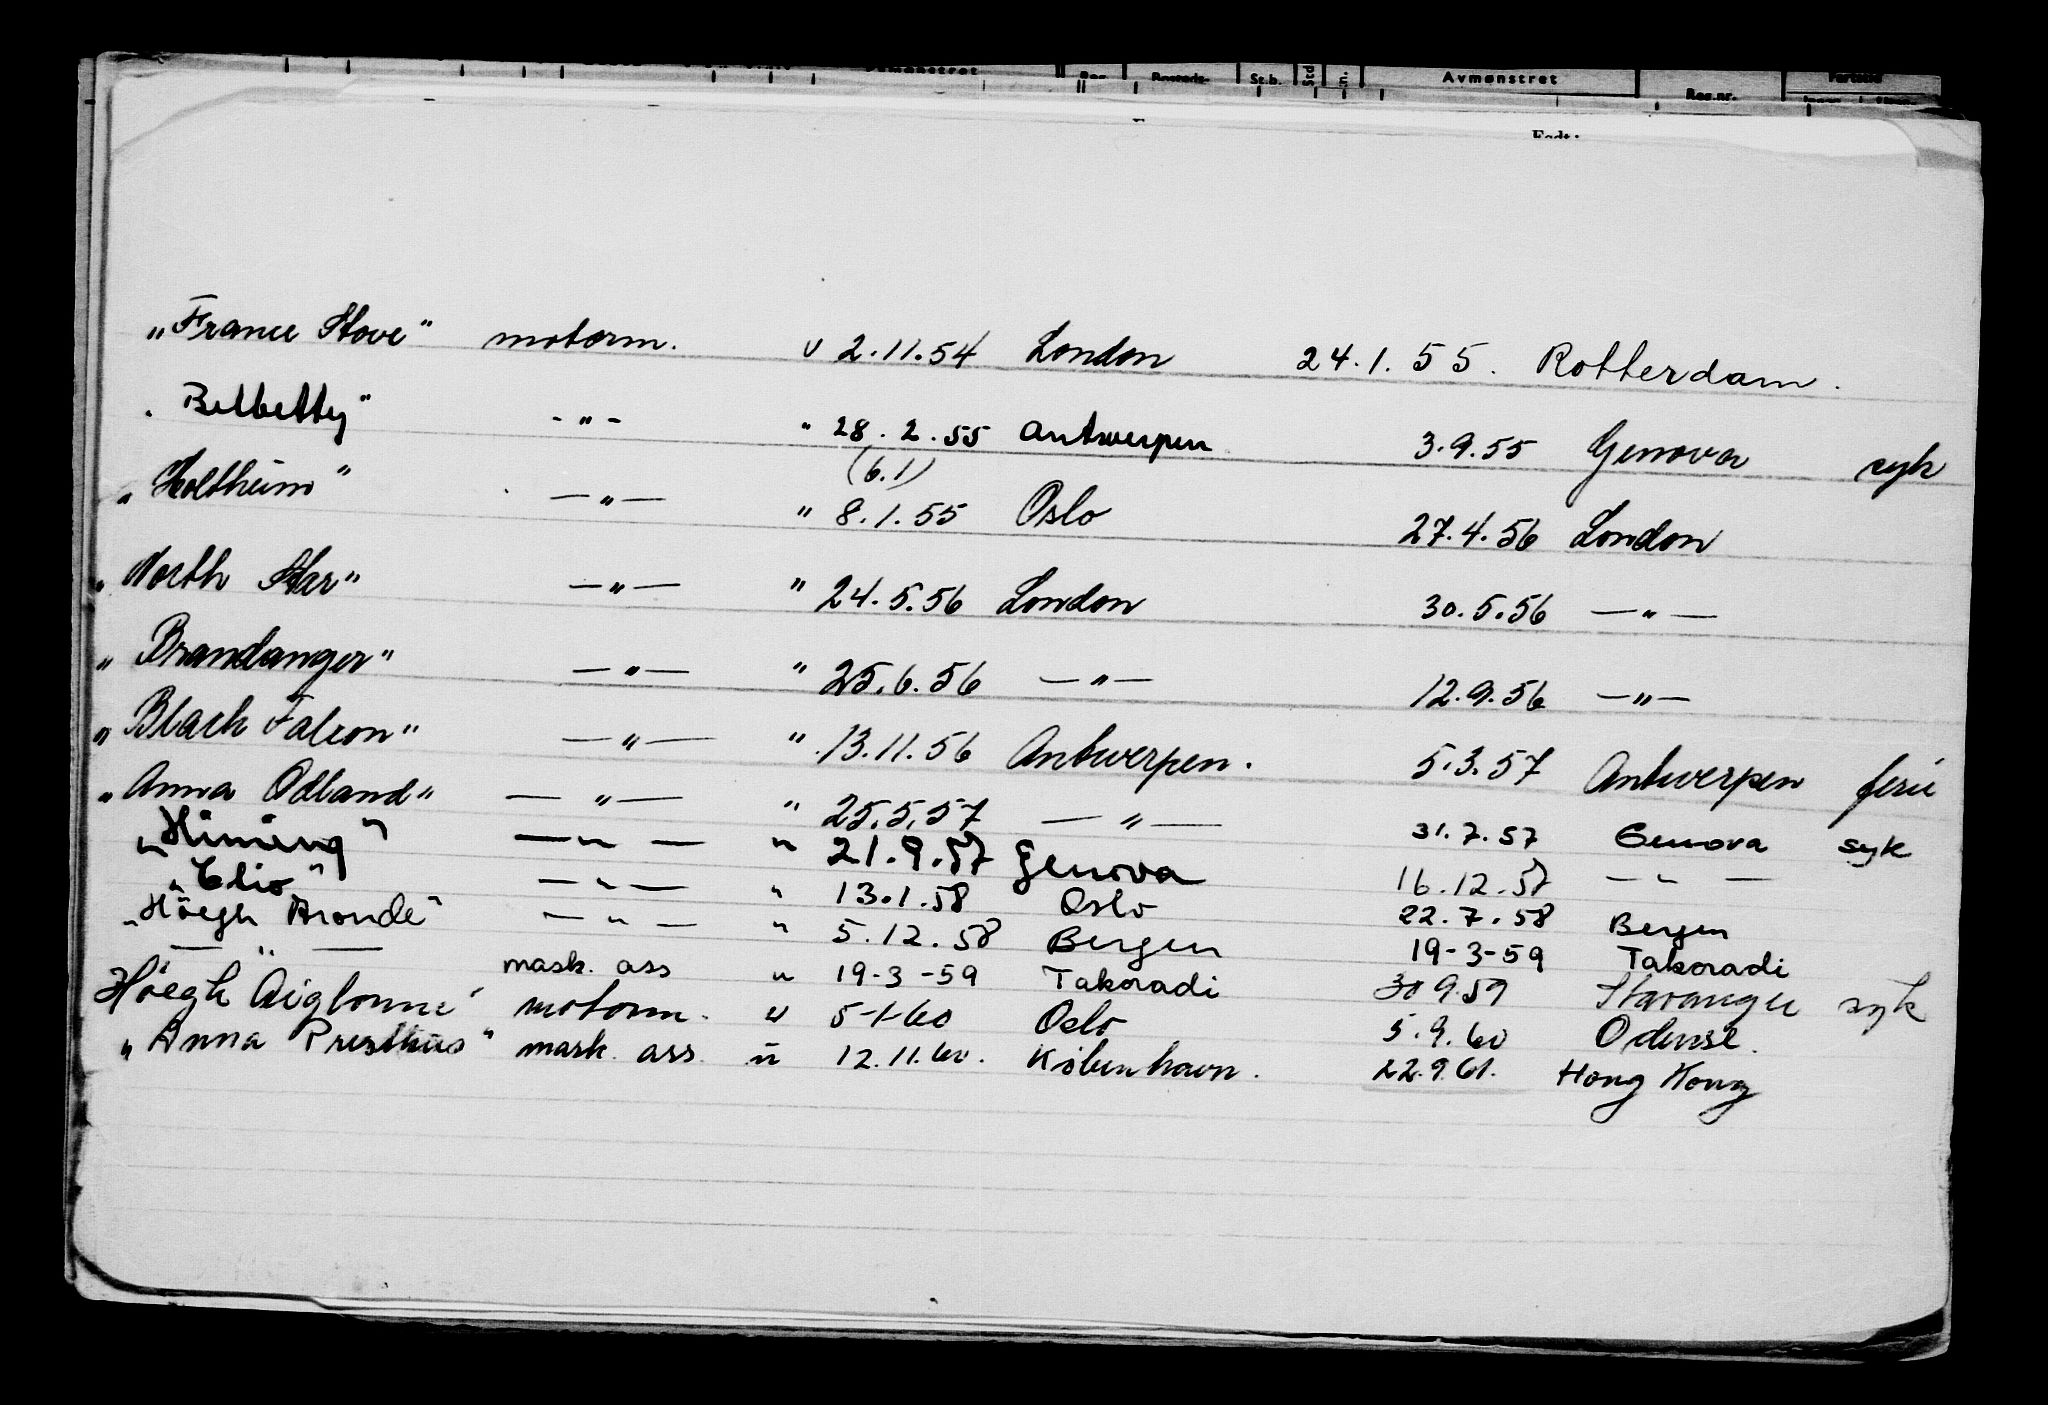 Avmønstret Reg.nr.
"France Stove" motorm. u 2.11.54 London 24.1.55. Rotterdam.
"Belbetty" -"- " 28.2.55 Antwerpen 3.9.55 Genova syk
(6.1)
"Holtheim" -"- " 8.1.55 Oslo 27.4.56 London
"North Star" -"- " 24.5.56 London 30.5.56 -"-
"Brandanger" -"- " 25.6.56 -"- 12.9.56 -"-
"Black Falcon" -"- " 13.11.56 Antwerpen. 5.3.57 Antwerpen ferie
"Anna Odland" -"- " 25.5.57 -"- 31.7.57 Genova syk
"Himing" -"- " 21.9.57 Genova 16.12.57 -"-
"Clio" -"- " 13.1.58 Oslo 22.7.58 Bergen
"Höegh Bronde" -"- " 5.12.58 Bergen 19-3-59 Takoradi
-"- mask. ass " 19-3-59 Takoradi 30 9.59 Stavanger syk
Höegh Aiglonne" motorm. u 5-1-60 Oslo 5.9.60 Odense.
"Anna Presthus" mask. ass. u 12.11.60. København. 22.9.61. Hong Kong